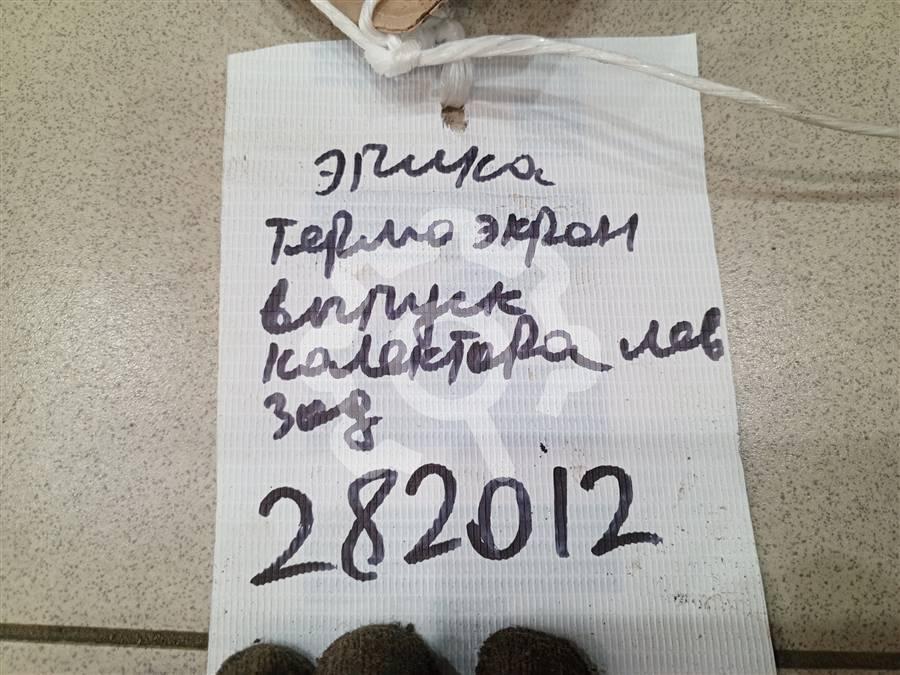 Эпика
Термо экран
выпуск
калектора лев
зад
282012